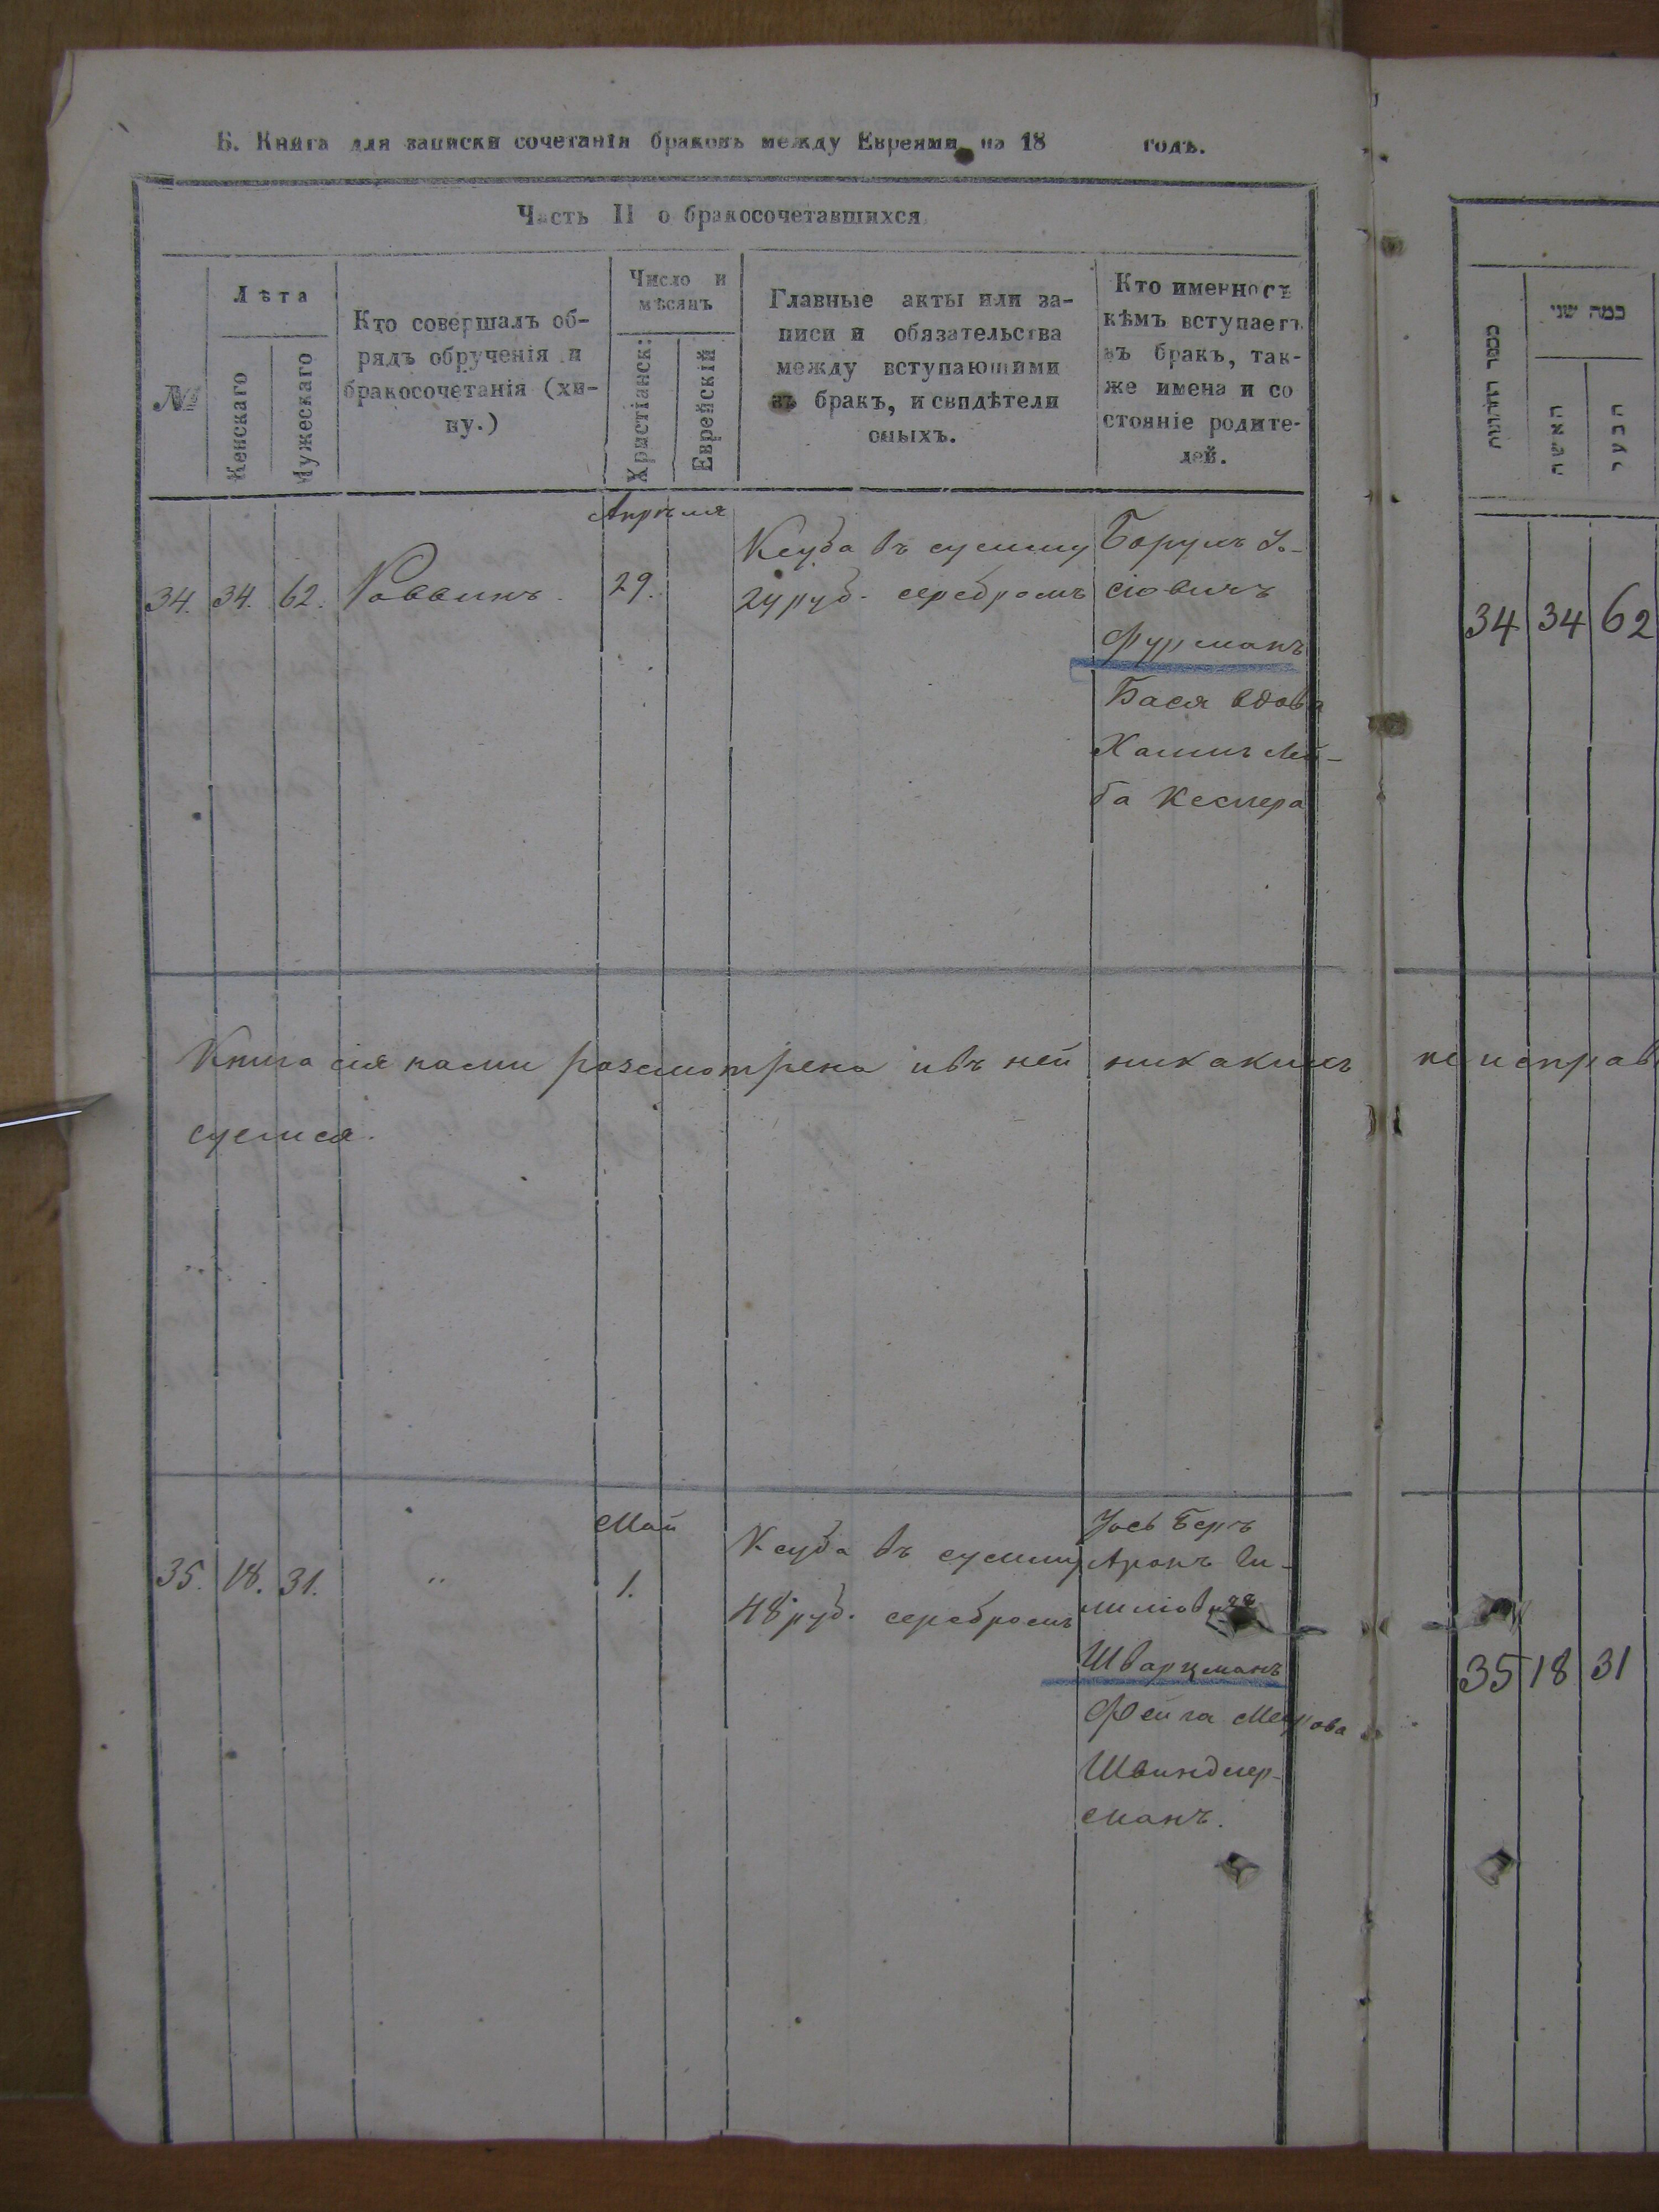 Б. Книга для записки сочетанія браковъ между Евреями на 18 годъ.
Часть II о бракосочетавшихся
№
Лѣта
Женскаго
Мужескаго
Кто совершалъ об-
рядъ обрученія и
бракосочетанія (хи-
пу.)
Число и
мѣсяцъ
Христіанск:
Еврейскій
Главные акты или за-
писи и обязательства
между вступающими
въ бракъ, и свидѣтели
оныхъ.
Кто именно съ
кѣмъ вступаетъ
въ бракъ, так-
же имена и со
стояніе родите-
лей.
כמה שני
האשה
הבעל
Апрѣля
34. 34. 62. Раввинъ. 29.
Ксуба въ сумму
24 руб. серебромъ
Борухъ Іо-
сіовичъ
Фурманъ
Бася вдова
Хаимъ Лей-
ба Кеслера
34 34 62
Книга сія нами розсмотрена и въ ней никакихъ не исправ
Май
35. 18. 31. " 1.
Ксуба въ сумму
48 руб. серебромъ
Іось Беръ
Аронъ
Шварцманъ
Фейга Меерова
Швиндлер-
манъ.
35 18 31